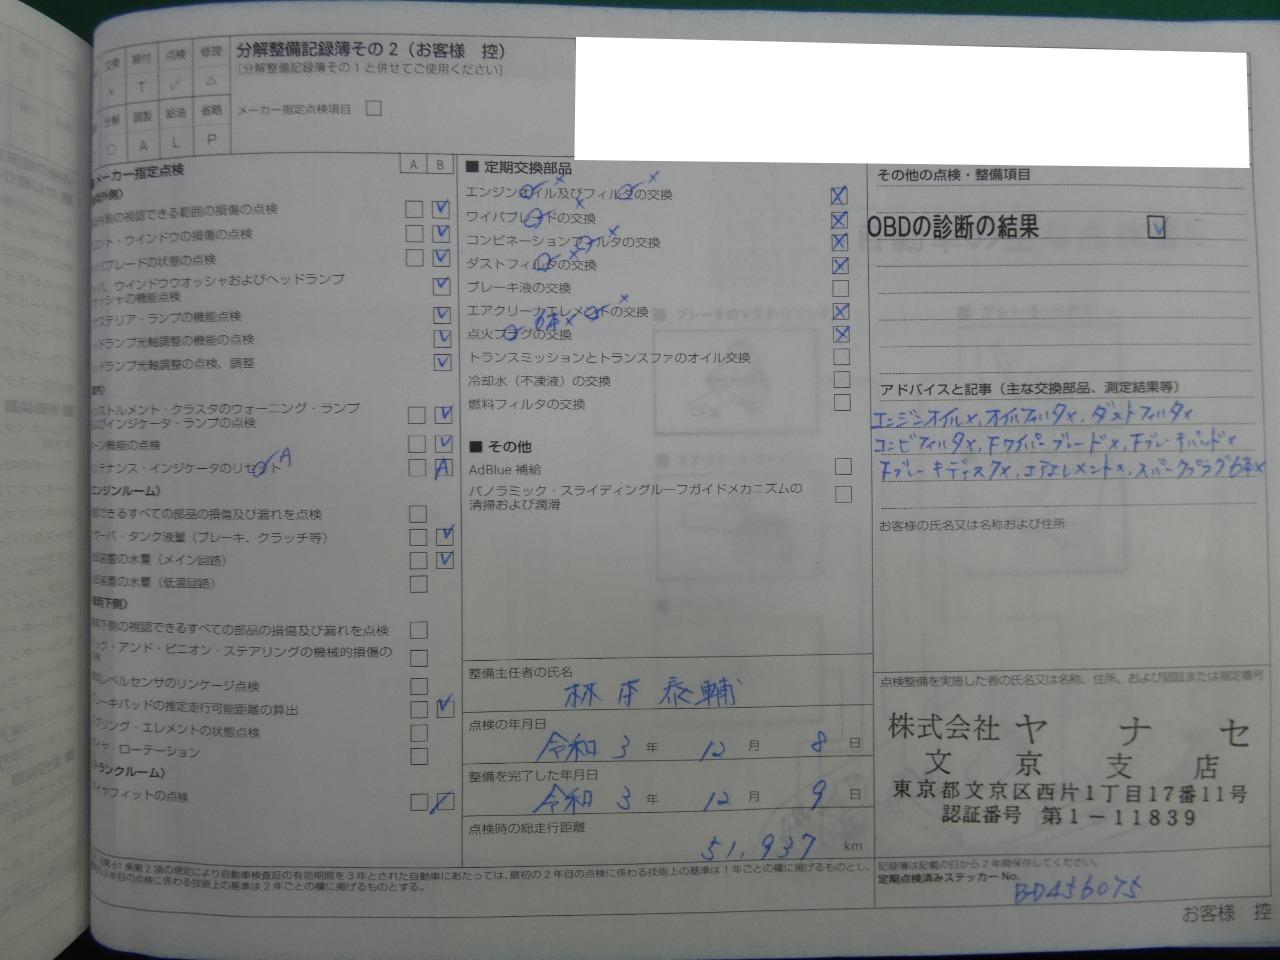 交換 締付 点検 修理
× T ✓ △
分解 調製 給油 省略
○ A L P
分解整備記録簿その2(お客様 控)
[分解整備記録簿その1と併せてご使用ください]
メーカー指定点検項目
メーカー指定点検
A B
の視認できる範囲の損傷の点検
ント・ウインドウの損傷の点検
ブレードの状態の点検
、ウインドウウオッシャおよびヘッドランプ
ッシャの機能点検
ステリア・ランプの機能点検
ドランプ光軸調整の機能の点検
ドランプ光軸調整の点検、調整
ストルメント・クラスタのウォーニング・ランプ
よびインジケータ・ランプの点検
ーン機能の点検
ンテナンス・インジケータのリセット A
A
ンジンルーム〉
できるすべての部品の損傷及び漏れを点検
ザーバ・タンク液量(ブレーキ、クラッチ等)
装置の水量(メイン回路)
装置の水量(低温回路)
下側〉
下側の視認できるすべての部品の損傷及び漏れを点検
ック・アンド・ピニオン・ステアリングの機械的損傷の
レベルセンサのリンケージ点検
レーキパッドの推定走行可能距離の算出
アリング・エレメントの状態点検
イヤ・ローテーション
トランクルーム〉
イヤフィットの点検
■ 定期交換部品
エンジンオイル及びフィルタの交換
ワイパブレードの交換
コンビネーションフィルタの交換
ダストフィルタの交換
ブレーキ液の交換
エアクリーナエレメントの交換
点火プラグの交換 6本×
トランスミッションとトランスファのオイル交換
冷却水(不凍液)の交換
燃料フィルタの交換
■ その他
AdBlue 補給
パノラミック・スライディングルーフガイドメカニズムの
清掃および潤滑
整備主任者の氏名
林 本 泰輔
点検の年月日
令和 3 年 12 月 8 日
整備を完了した年月日
令和 3 年 12 月 9 日
点検時の総走行距離
51,937 km
その他の点検・整備項目
OBDの診断の結果 ✓
アドバイスと記事(主な交換部品、測定結果等)
エンジンオイル×, オイルフィルタ×, ダストフィルタ×
コンビフィルタ×, Fワイパーブレード×, Fブレーキパッド×
Fブレーキディスク×, エアエレメント×, スパークプラグ6本×
お客様の氏名又は名称および住所
点検整備を実施した者の氏名又は名称、住所、および認証または指定番号
株式会社 ヤナセ
文京支店
東京都文京区西片1丁目17番11号
認証番号 第1-11839
記録簿は記載の日から2年間保存してください。
定期点検済みステッカーNo.
BD456075
第61条第2項の規定により自動車検査証の有効期間を3年とされた自動車にあたっては、最初の2年目の点検に係わる技術上の基準は1年ごとの欄に掲げるものとし、
3年目の点検に係わる技術上の基準は2年ごとの欄に掲げるものとする。
お客様 控